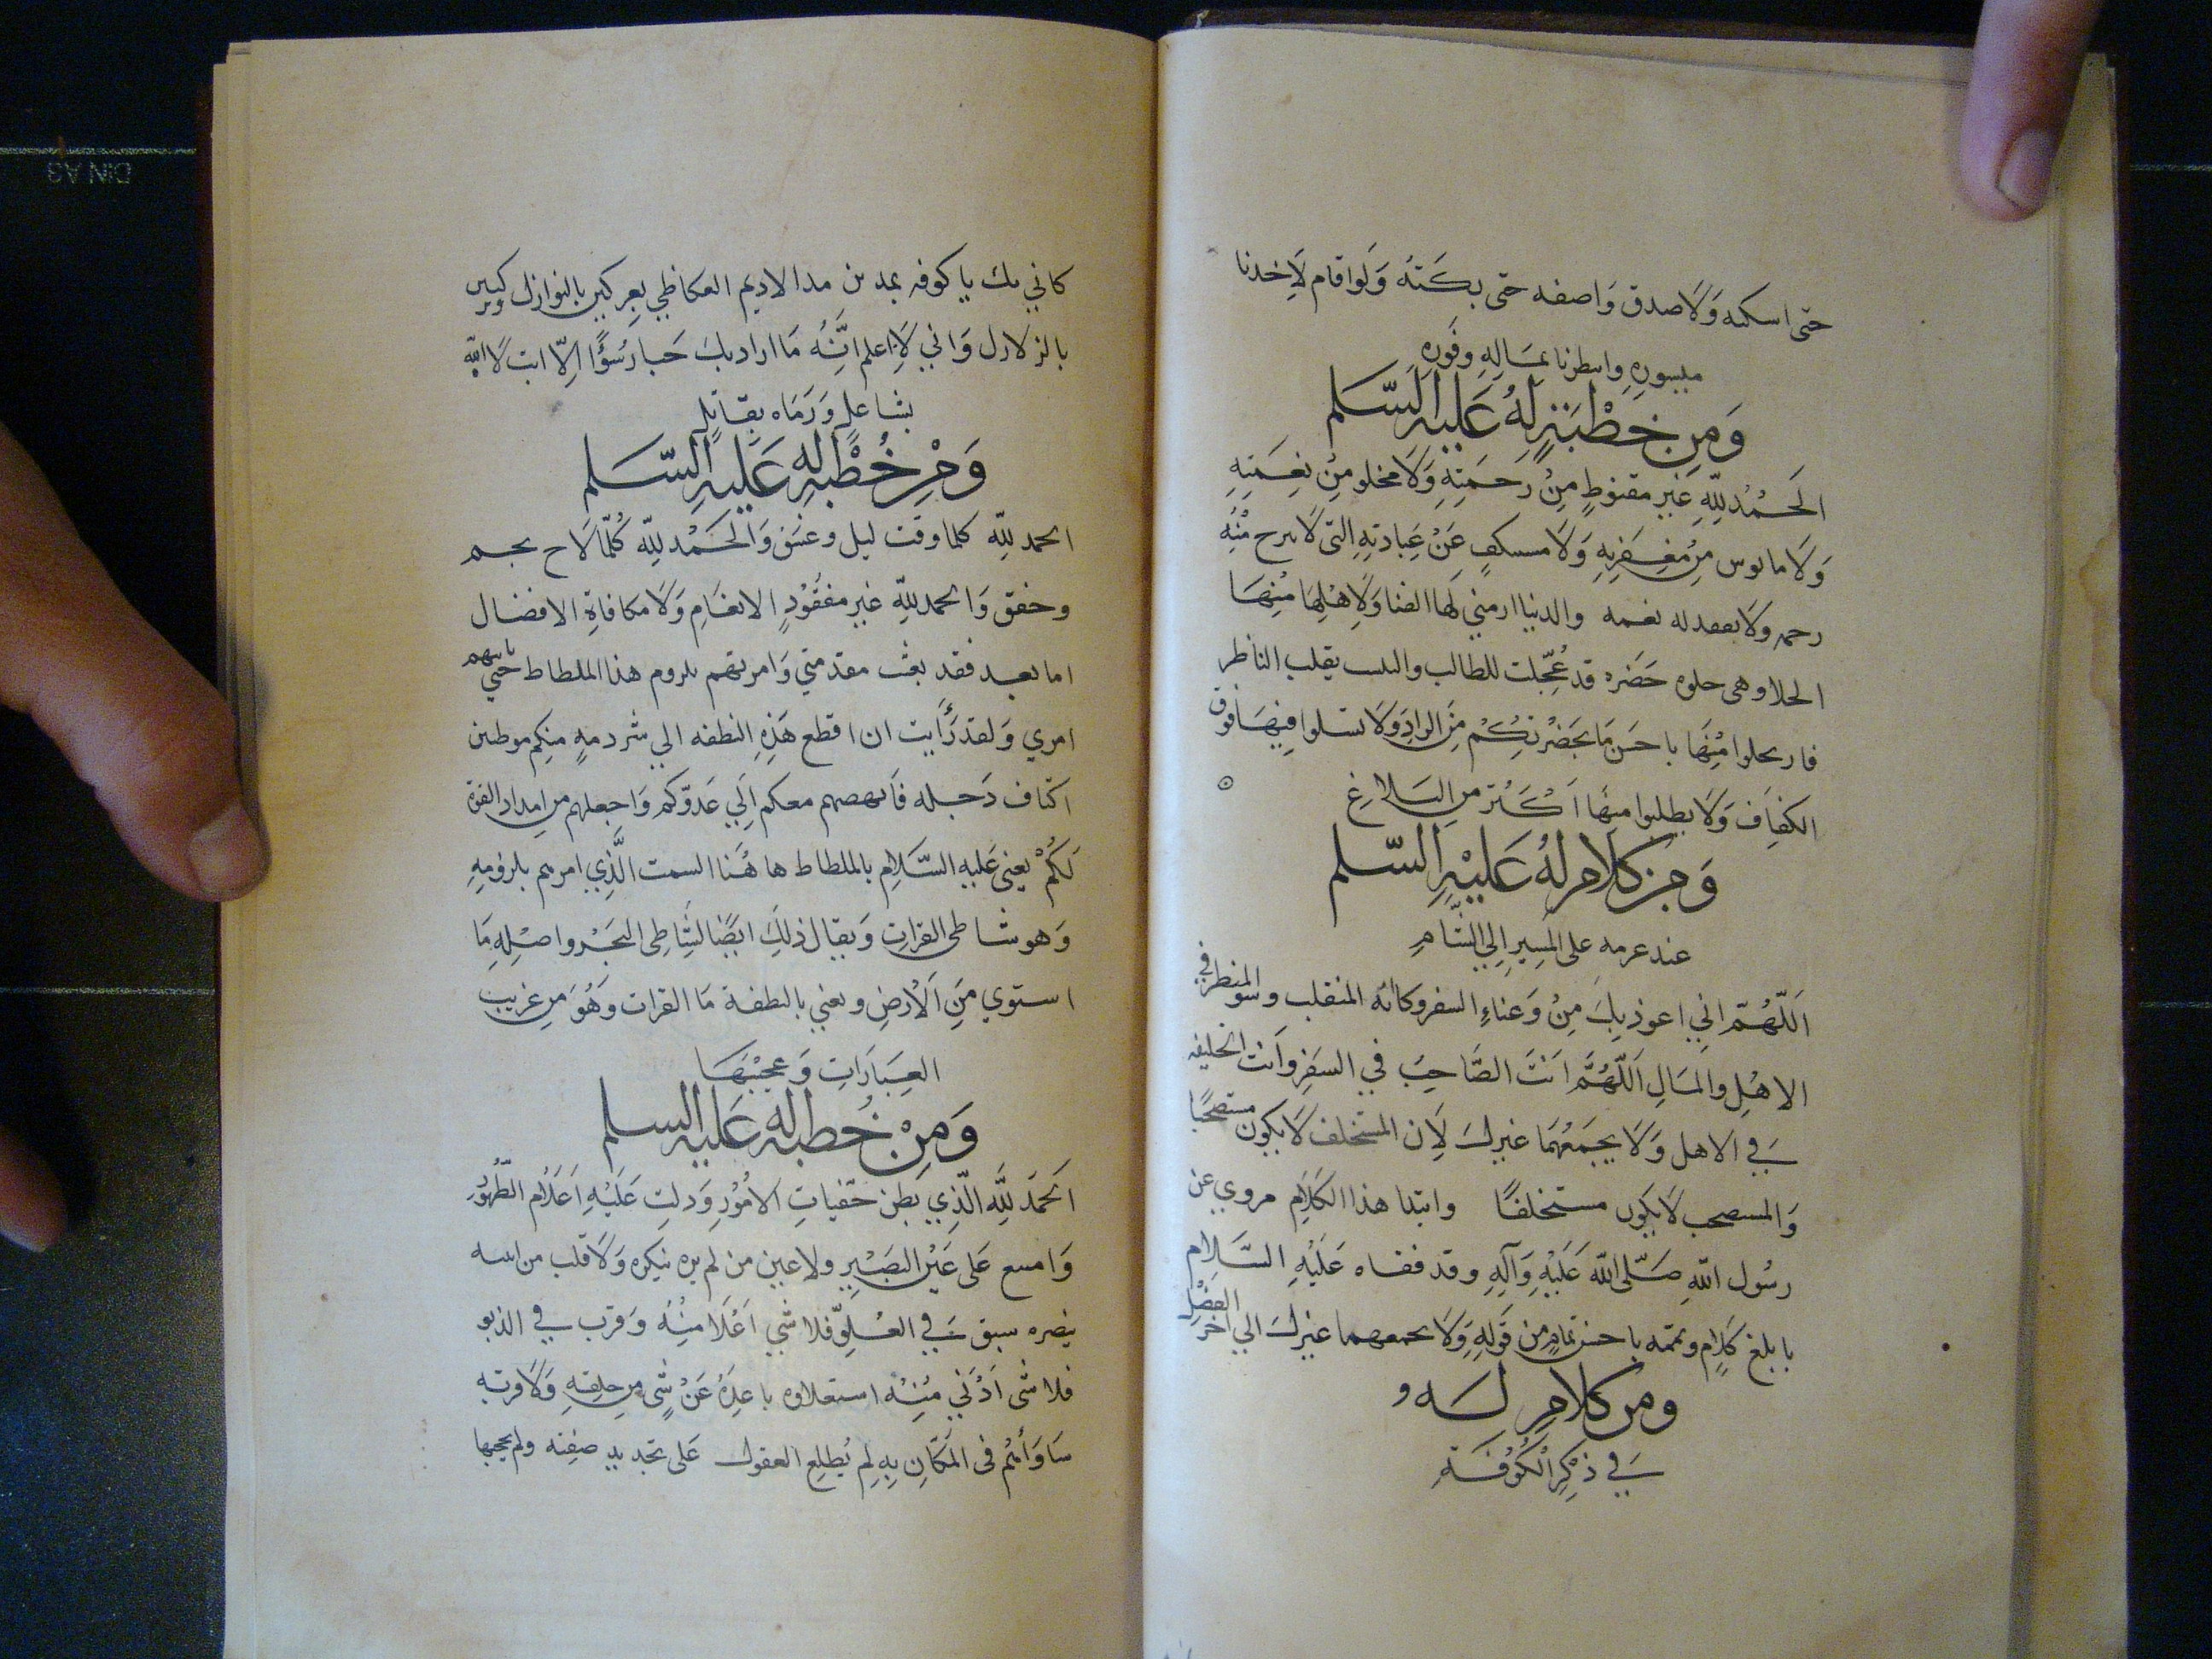 حتى اسكته وَلَا صدق وَاصفه حتى بكَتَه وَلَوا قام لَاخذنا
ميسورِهِ وانتظرنا بمَالِهِ وفورِهِ
وَمِن خطْبَةٍ لهُ عَلَيهِ السَّلم
الحَمْدُ لِلّهِ غير مقنوطٍ مِنْ رَحمَتِهِ وَلَا مخلو مِنْ نِعمَتِهِ
وَلَا مايوس مِنْ مَغفِرَتِهِ وَلَا مستنكفٍ عَنْ عِبَادتِهِ التى لَا تبرح مْنهُ
رحمه ولَا يفقد له نعمه والدنيا دار مني لَهَا الفنا وَلِاهْلِهَا مْنِهَا
الجلا وهى حلوه خَضرَه قد عُجِّلت للطالب والتبست بقلب الناظر
فارتحلوا مْنِهَا باحسَن مَا بحَضْرتِكُمْ مِنَ الزادِ وَلَا تسلوا فِيهَا فوق
الكفَاف وَلَا تطلبوا منِهَا اَكْثَر من البَلاغ
وَمِن كلَام لهُ عَلَيْهِ السّلم
عند عزمه على المَسِيرِ الِي الشّامِ
اَللّهُمّ انِي اعوذ بِكَ مِنْ وَعثاءِ السفر وكآبه المنقلب وسُو المنظر في
الاهْلِ والمَالِ اَللّهُمَّ اَنتَ الصَّاحِبُ في السَفِر وأنت الخليفه
في الاهل وَلَا يجَمعُهمَا غيرك لَان المستخلف لَا يكون مستصحبًا
وَالمستصحب لَا يكون مستخلفًا وابتدا هذا الكلَامِ مروي عن
رسُول اللهِ صَلّى اللّه عَلَيْهِ وَآلِهِ وقد قفاه عَلَيْهِ السَّلام
بابلغ كلَامٍ وتممه باحسن تمامٍ من قَولِهِ وَلَا يجمعهما غيرك الي آخر الفصْلِ
ومن كلامٍ لَه و
في ذِكْرِ الكُوْفَةِ
كاني بك يا كوفه تمدين مد الاديم العكاظي تعركين بالنوازل وتركبين
بالزلازل وَاني لَاعلم انَّهُ مَا اراد بكَ جَبار سُؤًا الِّا ابتلَاه اللّه
بشاغلٍ وَرَمَاه بقاتلٍ
وَمِنْ خُطْبةٍ لهِ عَلَيهِ السّلم
الحمد لِلّهِ كلما وقت ليل وغسَق وَالحَمْد لِلّه كُلّمَا لَاح نجم
وخفق وَالحمد لِلّهِ غير مفقُودٍ الانعَامِ وَلَا مكافاةِ الافضال
اما بعد فقد بعثت مقدمتي وَامرتهم بلزوم هذا الملطاط حتي ياتيهم
امري وَلقد رَأَيت ان اقطع هَذِهِ النطفه الي شرذمهٍ منكم موطنين
اكناف دَجله فَانهضهم معكم اِلَي عَدوّكم وَاجعلهم من امداد القوة
لكُمْ يعنى عَليه السَّلَام بالملطاط ها هُنا السمت الَّذِي امرهم بلزومِهِ
وَهو شاطى الفرات وَيقال ذلِكَ ايضًا لشَاطِى البَحْر واصْلِهِ مَا
استوي مِنَ الْارضِ ويعني بالنطفة مَا الفرات وَهُوَ من غريب
العِبَارَاتِ وَعجيْبهَا
وَمِنْ خُطبه لهِ عَلَيهِ السلم
الحَمَد لِلَّهِ الّذِي بطن خفيات الامُوْرِ وَدلت عَلَيْهِ اَعلَام الظّهُوْرِ
وَامتنع عَلى عَيْنِ البَصْيرِ ولا عين من لم يره ينكره وَلَا قلب من اثبته
يبصره سبق في العُلوِّ فلا شي اَعْلَا منِهُ وَقرب في الدنو
فلا شى اَدْنَي مْنِهُ استعلاوه باعدَهُ عَنْ شى من خلقِهِ وَلَا قربه
سَاوَاهُم فى المَكان بِهِ لم يُطلع العقول عَلى تحديد صفِته ولم يحجبها